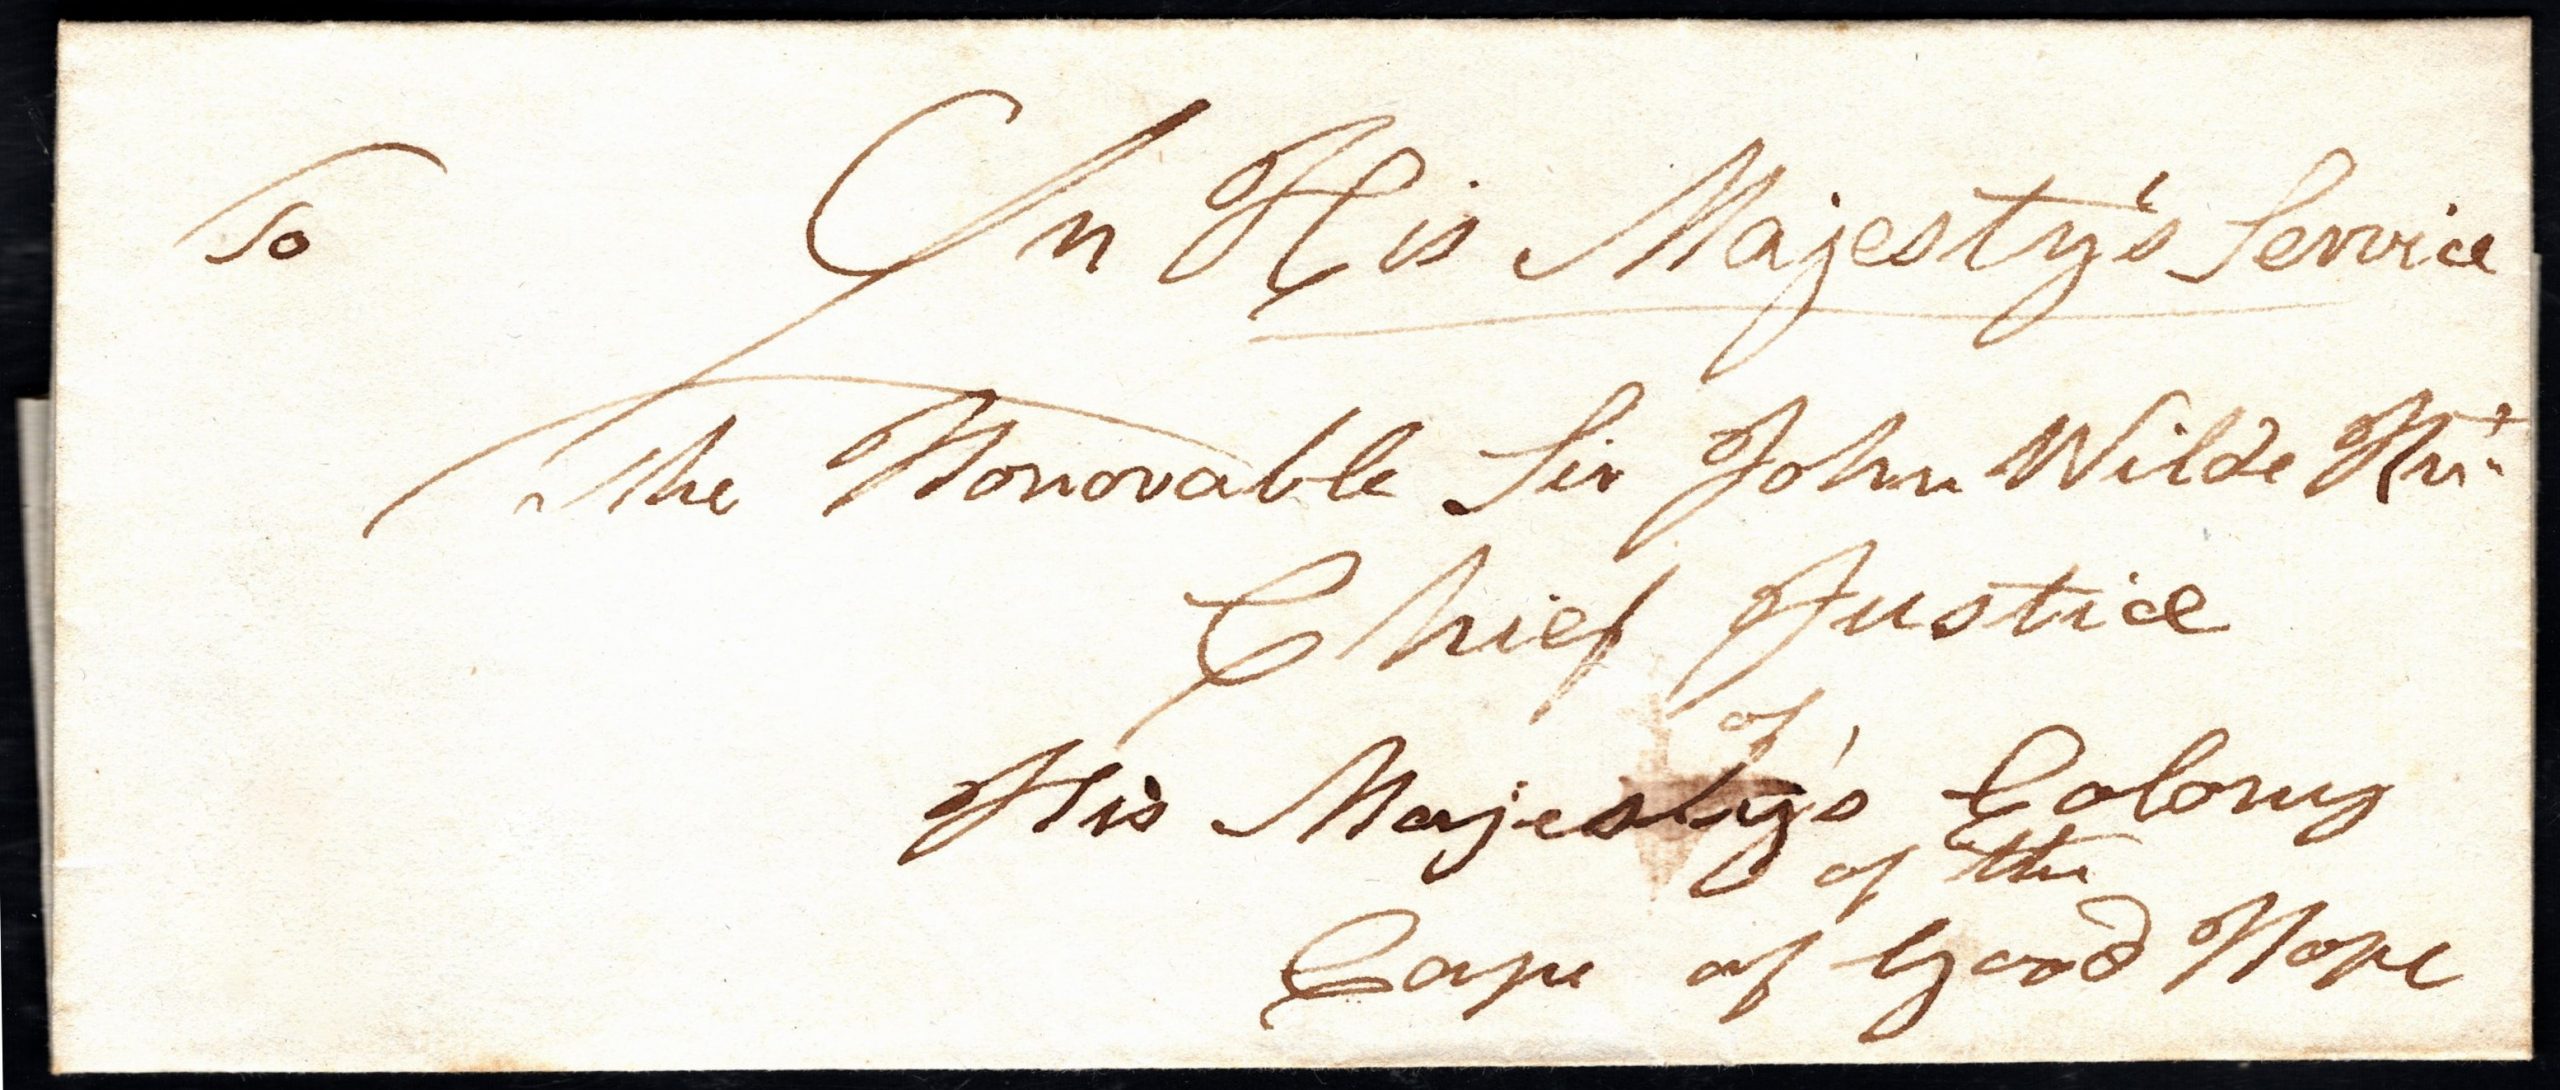 To
On His Majesty's Service
The Honorable Sir John Wilde Knt
Chief Justice
of
His Majesty's Colony
of the
Cape of Good Hope